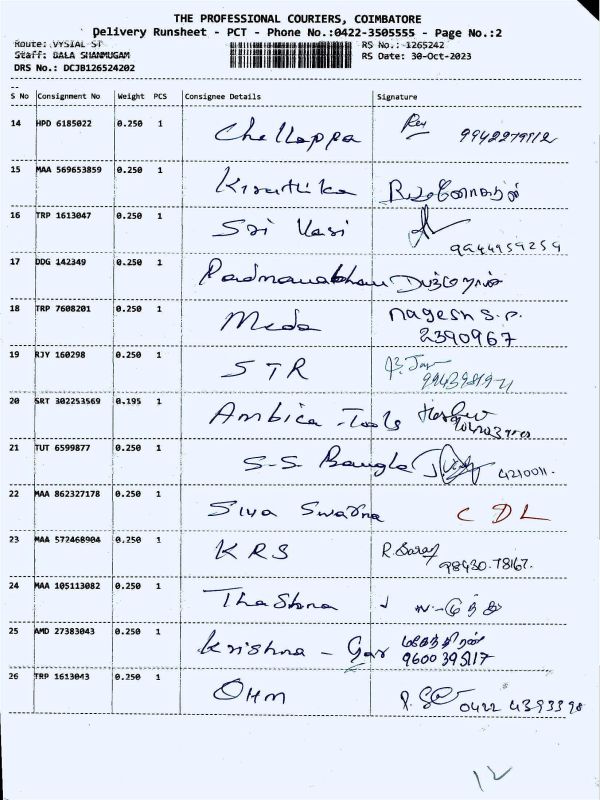 THE PROFESSIONAL COURIERS, COIMBATORE
Delivery Runsheet - PCT - Phone No.:0422-3505555 - Page No.:2
Route: VYSIAL ST RS No.: 1265242
Staff: BALA SHANMUGAM RS Date: 30-Oct-2023
DRS No.: DCJB126524202
S No Consignment No Weight PCS Consignee Details Signature
14 HPD 6185022 0.250 1 Chellappa
15 MAA 569653859 0.250 1 Kiruthika
16 TRP 1613047 0.250 1 Sri Vasi
9944959259
17 DDG 142349 0.250 1 Padmanabhan
18 TRP 7608201 0.250 1 Meda nagesh s.p.
2390967
19 RJY 160298 0.250 1 STR
20 SRT 302253569 0.195 1 Ambica Tools
21 TUT 6599877 0.250 1 S.S. Bangle 4210011.
22 MAA 862327178 0.250 1 Siva Swarna CDL
23 MAA 572468904 0.250 1 KRS
98430.78167.
24 MAA 105113082 0.250 1
25 AMD 27383043 0.250 1 Krishna - மகேந்திரன்
26 TRP 1613043 0.250 1 OHM
0422 4393398
12